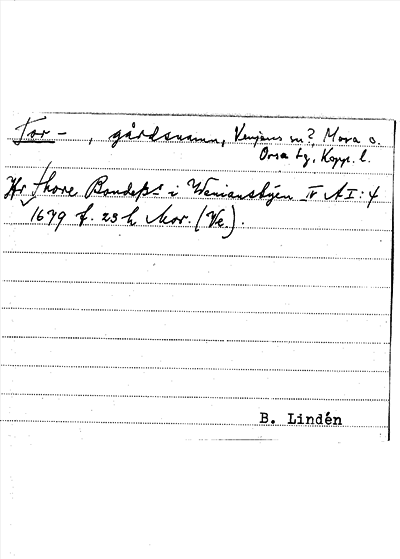 Tor- , gårdsnamn, Venjans sn?, Mora o.
Orsa tg, Kopp. l.
Hr Thore i Weniansbÿen IV A I: 4
1679 f. 23 h Mor. (Ve).
B. Lindén